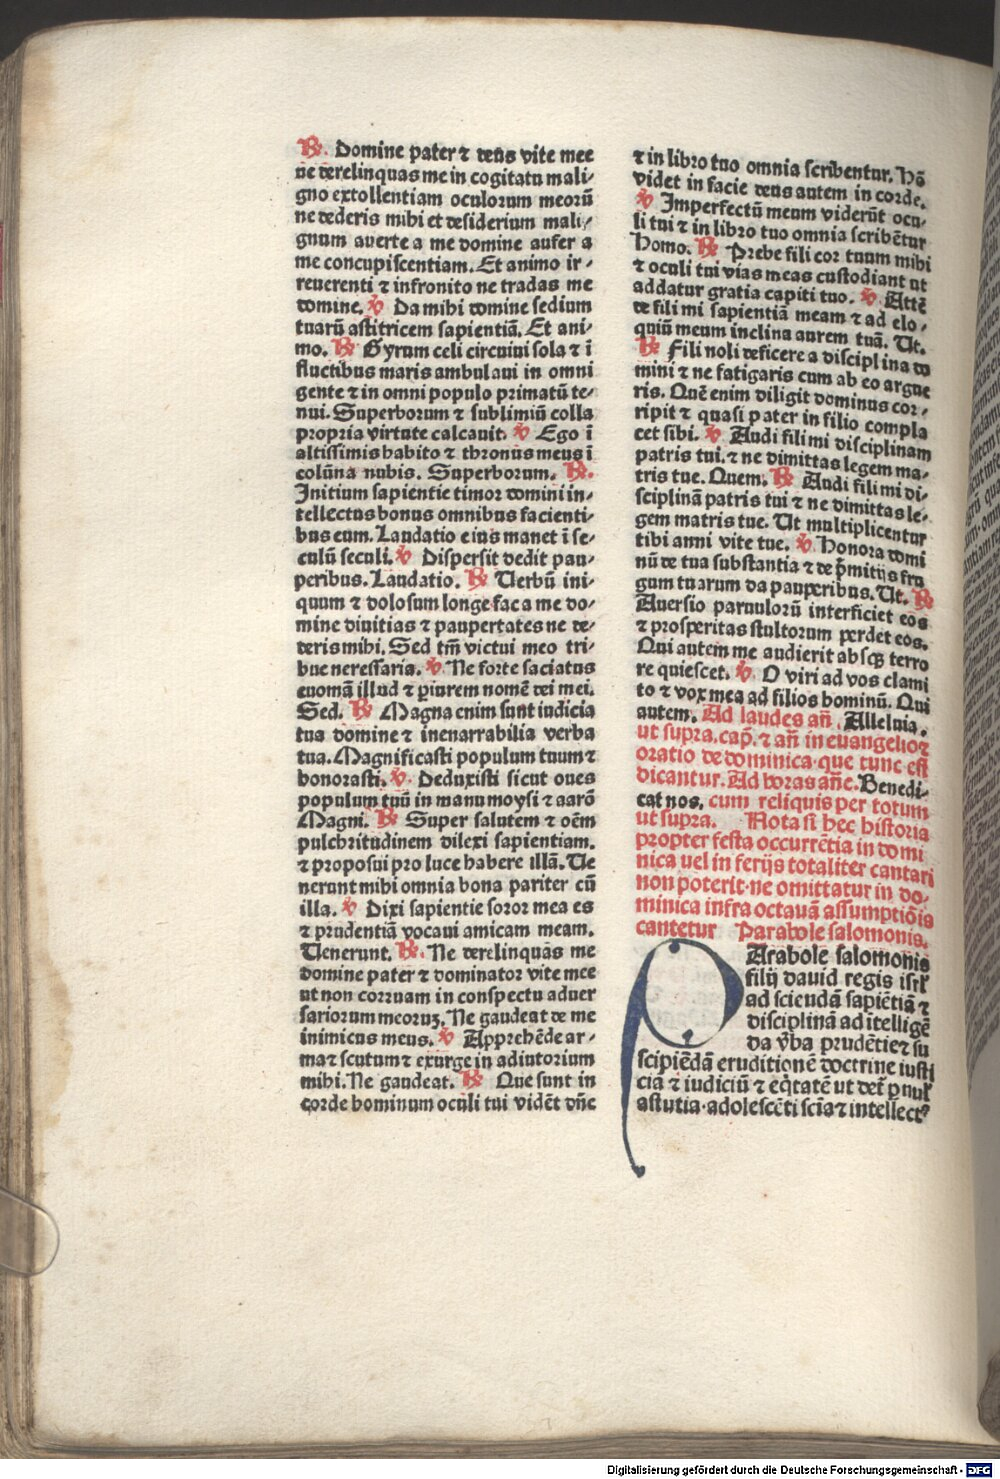 ℟. Domine pater ⁊ deus vite mee
ne derelinquas me in cogitatu mali⸗
gno extollentiam oculorum meorū
ne dederis mihi et desiderium mali⸗
gnum auerte a me domine aufer a
me concupiscentiam. Et animo ir⸗
reuerenti ⁊ infronito ne tradas me
domine. ℣ Da mihi domine sedium
tuarū astitricem sapientiā. Et ani⸗
mo. ℟ Gyrum celi circuiui sola ⁊ ī
fluctibus maris ambulaui in omni
gente ⁊ in omni populo primatū te⸗
nui. Superborum ⁊ sublimiū colla
propria virtute calcauit. ℣ Ego ī
altissimis habito ⁊ thronus meus ī
colūna nubis. Superborum. ℟.
Initium sapientie timor domini in⸗
tellectus bonus omnibus facienti⸗
bus eum. Laudatio eius manet ī se⸗
culū seculi. ℣ Dispersit dedit pau⸗
peribus. Laudatio. ℟ Uerbū ini⸗
quum ⁊ dolosum longe fac a me do⸗
mine diuitias ⁊ paupertates ne de⸗
deris mihi. Sed tm̄ victui meo tri⸗
bue neressaria. ℣ Ne forte saciatus
euomā illud ⁊ ꝑiurem nomē dei mei.
Sed. ℟ Magna enim sunt iudicia
tua domine ⁊ inenarrabilia verba
tua. Magnificasti populum tuum ⁊
honorasti. ℣. Deduxisti sicut oues
populum tuū in manu moysi ⁊ aarō
Magni. ℟ Super salutem ⁊ oēm
pulchritudinem dilexi sapientiam.
⁊ proposui pro luce habere illā. Ue
nerunt mihi omnia bona pariter cū
illa. ℣ Dixi sapientie soror mea es
⁊ prudentiā vocaui amicam meam.
Uenerunt. ℟. Ne derelinquas me
domine pater ⁊ dominator vite mee
ut non corruam in conspectu aduer
sariorum meoruꝫ. Ne gaudeat de me
inimicus meus. ℣ Apprehēde ar⸗
ma ⁊ scutum ⁊ exurge in adiutorium
mihi. Ne gaudeat. ℟ Que sunt in
corde hominum oculi tui vidēt dn̄e
⁊ in libro tuo omnia scribentur. Hō
videt in facie deus autem in corde.
℣ Imperfectū meum viderūt ocu⸗
li tui ⁊ in libro tuo omnia scribētur
Homo. ℟ Prebe fili cor tuum mihi
⁊ oculi tui vias meas custodiant ut
addatur gratia capiti tuo. ℣ Attē
de fili mi sapientiā meam ⁊ ad elo⸗
quiū meum inclina aurem tuā. Ut.
℟ Fili noli deficere a disciplina do
mini ⁊ ne fatigaris cum ab eo argue
ris. Quē enim diligit dominus cor⸗
ripit ⁊ quasi pater in filio compla
cet sibi. ℣ Audi fili mi disciplinam
patris tui. ⁊ ne dimittas legem ma⸗
tris tue. Quem. ℟ Audi fili mi di⸗
sciplinā patris tui ⁊ ne dimittas le⸗
gem matris tue. Ut multiplicentur
tibi anni vite tue. ℣ Honora domi
nū de tua substantia ⁊ de p̄mitijs fru
gum tuarum da pauperibus. Ut. ℟
Auersio paruulorū interficiet eos
⁊ prosperitas stultorum perdet eos.
Qui autem me audierit absqꝫ terro
re quiescet. ℣ O viri ad vos clami
to ⁊ vox mea ad filios hominū. Qui
autem. Ad laudes an̄. Alleluia.
ut supra. cap̄. ⁊ an̄ in euangelio ⁊
oratio de dominica·que tunc est
dicantur. Ad horas an̄e. Benedi⸗
cat nos. cum reliquis per totum
ut supra. Nota si hec historia
propter festa occurrētia in domi
nica uel in ferijs totaliter cantari
non poterit·ne omittatur in do⸗
minica infra octauā assumptiōis
cantetur Parabole salomonis.
PArabole salomonis
filij dauid regis isrl̄
ad sciendā sapiētiā ⁊
disciplinā ad ītelligē
da v̄ba prudētie ⁊ su
scipiēdā eruditionē doctrine iusti
ciā ⁊ iudiciū ⁊ eq̄tatē ut det̄ ꝑuul̄
astutia·adolescēti scīa ⁊ intellectꝰ
Digitalisierung gefördert durch die Deutsche Forschungsgemeinschaft - DFG